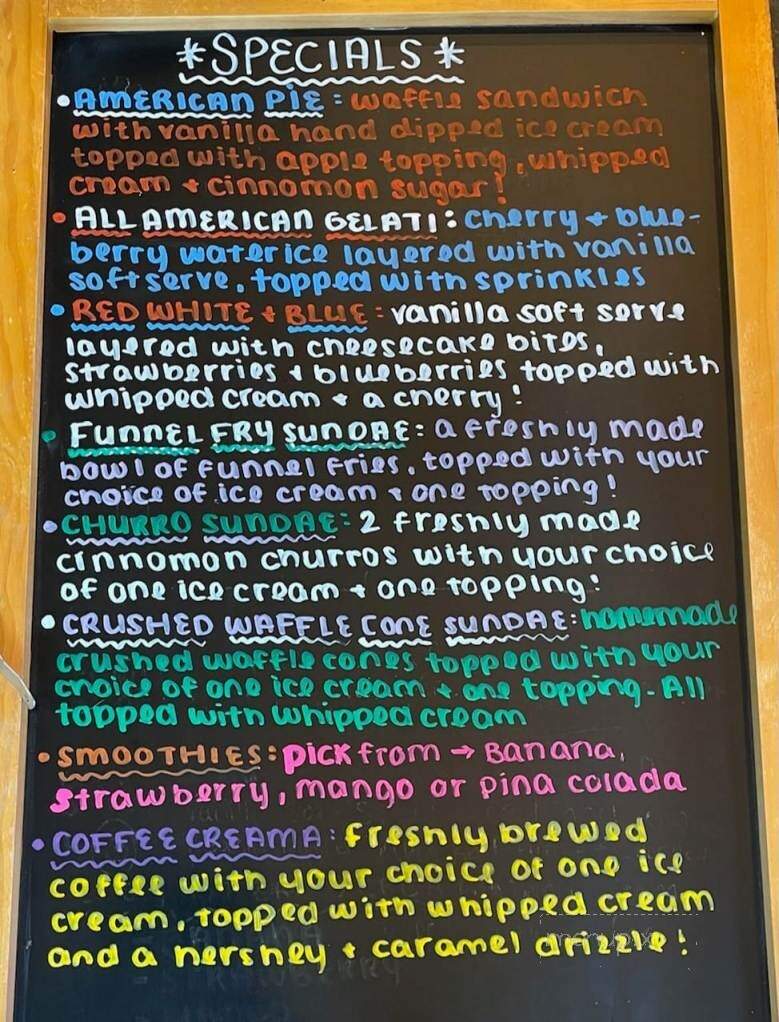 *SPECIALS*
•AMERICAN PIE: waffle sandwich
with vanilla hand dipped ice cream
topped with apple topping, whipped
cream + cinnomon sugar!
•ALL AMERICAN GELATI: cherry + blue-
berry water ice layered with vanilla
soft serve, topped with sprinkles
•RED WHITE + BLUE: vanilla soft serve
layered with cheesecake bites,
strawberries + blueberries topped with
whipped cream + a cherry!
•FUNNEL FRY SUNDAE: a freshly made
bowl of funnel fries, topped with your
choice of ice cream + one topping!
•CHURRO SUNDAE: 2 freshly made
cinnomon churros with your choice
of one ice cream + one topping!
•CRUSHED WAFFLE CONE SUNDAE: homemade
crushed waffle cones topped with your
choice of one ice cream + one topping. All
topped with whipped cream
•SMOOTHIES: pick from → Banana,
strawberry, mango or pina colada
•COFFEE CREAMA: freshly brewed
coffee with your choice of one ice
cream, topped with whipped cream
and a hershey + caramel drizzle!